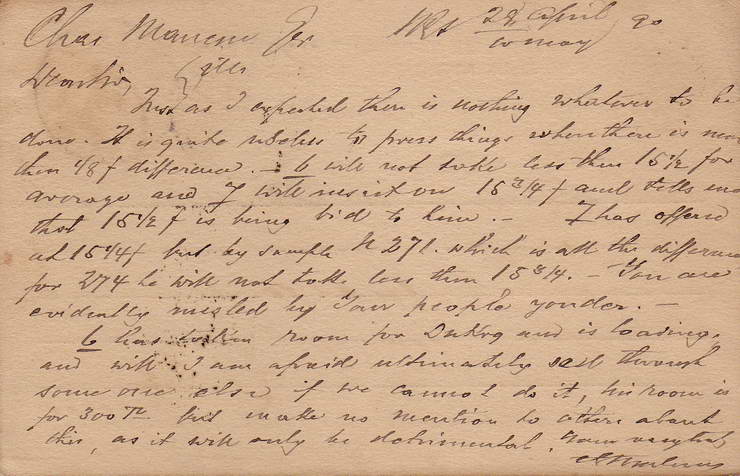 Chas Jr 28 April 90
10 May
Just as I expected there is nothing whatever to be
done. It is quite useless to press things when there is more
than 4/8 f difference. — 6 will not take less than 15 1/2 for
average and 7 will insist on 15 3/4 f and tells me
that 15 1/2 f is being bid to him. — 7 has offered
at 15 1/4 f but by sample N 271. which is all the difference
for 274 he will not take less than 15 3/4. — You are
evidently misled by Your people yonder. —
6 has taken room for and is loading,
and will I am afraid ultimately sell through
some one else if we cannot do it, his room is
for 300 but make no mention to others about
this, as it will only be detrimental. Yours very truly